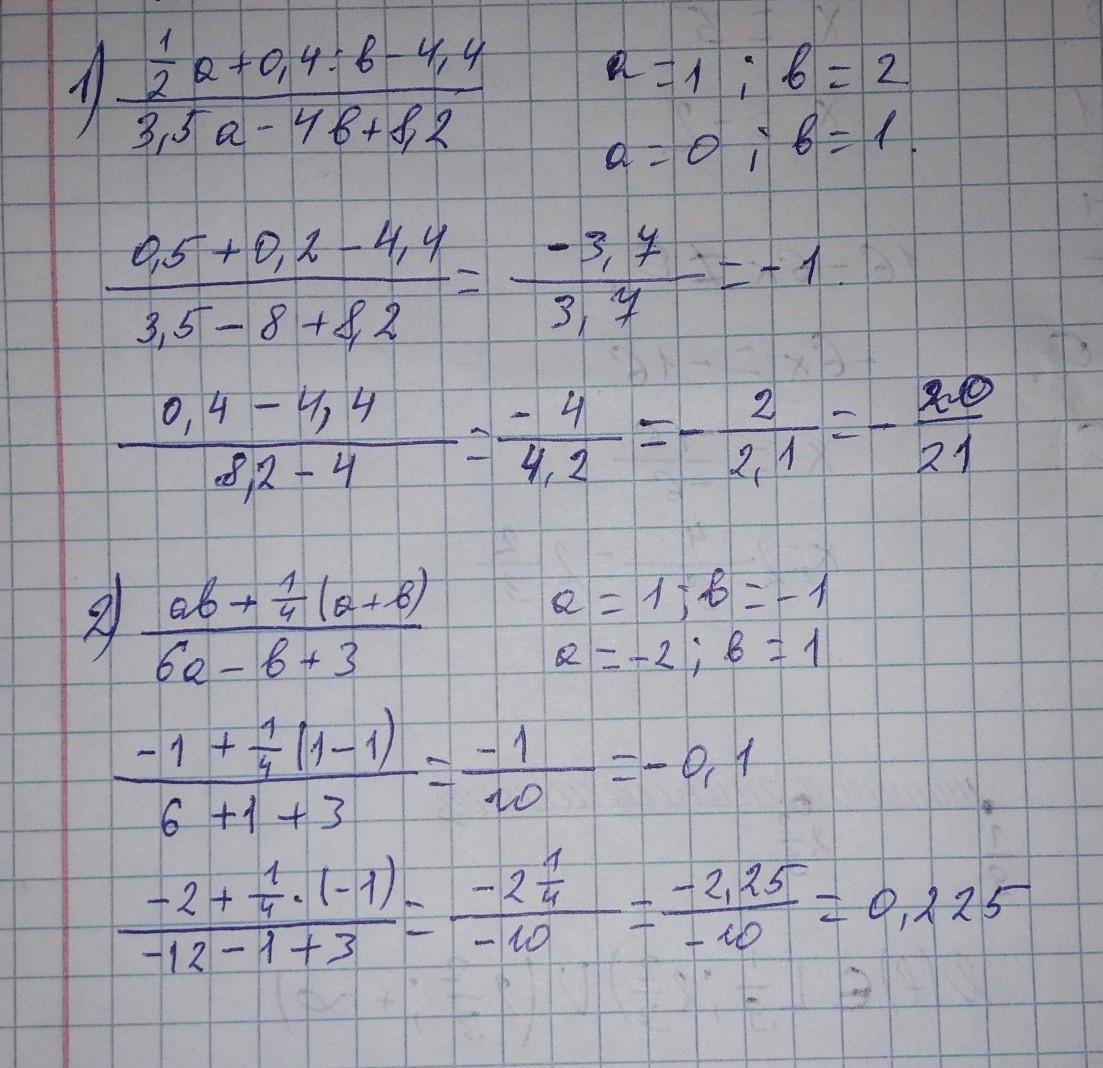 1) (1/2 a + 0,4 : в - 4,4) / (3,5a - 4в + 8,2) a = 1 ; в = 2
a = 0 ; в = 1.
(0,5 + 0,2 - 4,4) / (3,5 - 8 + 8,2) = (-3,7) / (3,7) = -1.
(0,4 - 4,4) / (8,2 - 4) = (-4) / (4,2) = - 2 / 2,1 = - 20 / 21
2) (ав + 1/4 (а + в)) / (6а - в + 3) a = 1 ; в = -1
a = -2 ; в = 1
(-1 + 1/4 (1 - 1)) / (6 + 1 + 3) = (-1) / 10 = -0,1
(-2 + 1/4 · (-1)) / (-12 - 1 + 3) = (-2 1/4) / (-10) = (-2,25) / (-10) = 0,225